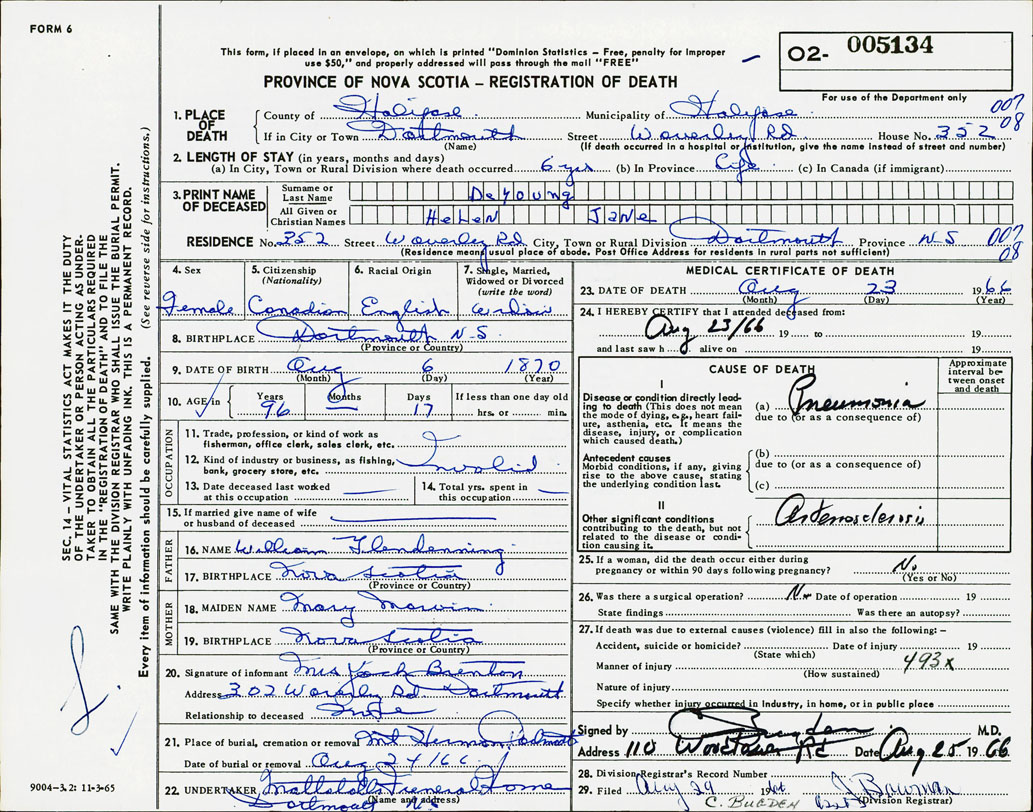 FORM 6
This form, if placed in an envelope, on which is printed "Dominion Statistics – Free, penalty for improper
use $50," and properly addressed will pass through the mail "FREE"
PROVINCE OF NOVA SCOTIA – REGISTRATION OF DEATH
O2- 005134
For use of the Department only
007
08
1. PLACE OF DEATH
County of Halifax Municipality of Halifax
If in City or Town Dartmouth Street Waverley Rd House No. 352
(Name) (If death occurred in a hospital or institution, give the name instead of street and number)
2. LENGTH OF STAY (in years, months and days)
(a) In City, Town or Rural Division where death occurred 6 yrs (b) In Province Life (c) In Canada (if immigrant)
3. PRINT NAME OF DECEASED
Surname or Last Name DeYoung
All Given or Christian Names HeLeN JANe
RESIDENCE No. 352 Street Waverley Rd City, Town or Rural Division Dartmouth Province N S
007
08
(Residence means usual place of abode. Post Office Address for residents in rural parts not sufficient)
4. Sex
Female
5. Citizenship
(Nationality)
Canadian
6. Racial Origin
English
7. Single, Married,
Widowed or Divorced
(write the word)
Widow
8. BIRTHPLACE Dartmouth N.S
(Province or Country)
9. DATE OF BIRTH Aug 6 1870
(Month) (Day) (Year)
10. AGE in Years Months Days If less than one day old
96 17 hrs. or min.
OCCUPATION
11. Trade, profession, or kind of work as
fisherman, office clerk, sales clerk, etc.
12. Kind of industry or business, as fishing,
bank, grocery store, etc. Invalid
13. Date deceased last worked
at this occupation
14. Total yrs. spent in
this occupation
15. If married give name of wife
or husband of deceased
FATHER
16. NAME William Glendenning
17. BIRTHPLACE Nova Scotia
(Province or Country)
MOTHER
18. MAIDEN NAME Mary
19. BIRTHPLACE Nova Scotia
(Province or Country)
20. Signature of informant Mrs Brenton
Address 302 Waverley Rd Dartmouth
Relationship to deceased
21. Place of burial, cremation or removal Mt Hermon Dartmouth
Date of burial or removal Aug 24/66
22. UNDERTAKER Mattatalls Funeral Home
(Name and address)
Dartmouth N.S
MEDICAL CERTIFICATE OF DEATH
23. DATE OF DEATH Aug 23 1966
(Month) (Day) (Year)
24. I HEREBY CERTIFY that I attended deceased from:
Aug 23/66 19 to 19
and last saw h alive on 19
CAUSE OF DEATH
Approximate interval between onset and death
I
Disease or condition directly leading to death (This does not mean the mode of dying, e.g., heart failure, asthenia, etc. It means the disease, injury, or complication which caused death.)
(a) Pneumonia
due to (or as a consequence of)
Antecedent causes
Morbid conditions, if any, giving rise to the above cause, stating the underlying condition last.
(b)
due to (or as a consequence of)
(c)
II
Other significant conditions
contributing to the death, but not related to the disease or condition causing it.
Arteriosclerosis
25. If a woman, did the death occur either during
pregnancy or within 90 days following pregnancy? No
(Yes or No)
26. Was there a surgical operation? No Date of operation 19
State findings Was there an autopsy?
27. If death was due to external causes (violence) fill in also the following: –
Accident, suicide or homicide? Date of injury 19
(State which)
Manner of injury 493x
(How sustained)
Nature of injury
Specify whether injury occurred in industry, in home, or in public place
Signed by M.D.
Address 110 Woodlawn Rd Date Aug 25 1966
28. Division Registrar's Record Number
29. Filed Aug 29 1966 J. Bowman
C. BUGDEN (Division Registrar)
SEC. 14 – VITAL STATISTICS ACT MAKES IT THE DUTY
OF THE UNDERTAKER OR PERSON ACTING AS UNDER-
TAKER TO OBTAIN ALL THE PARTICULARS REQUIRED
IN THE "REGISTRATION OF DEATH" AND TO FILE THE
SAME WITH THE DIVISION REGISTRAR WHO SHALL ISSUE THE BURIAL PERMIT.
WRITE PLAINLY WITH UNFADING INK. THIS IS A PERMANENT RECORD.
Every item of information should be carefully supplied. (See reverse side for instructions.)
9004-3.2: 11-3-65